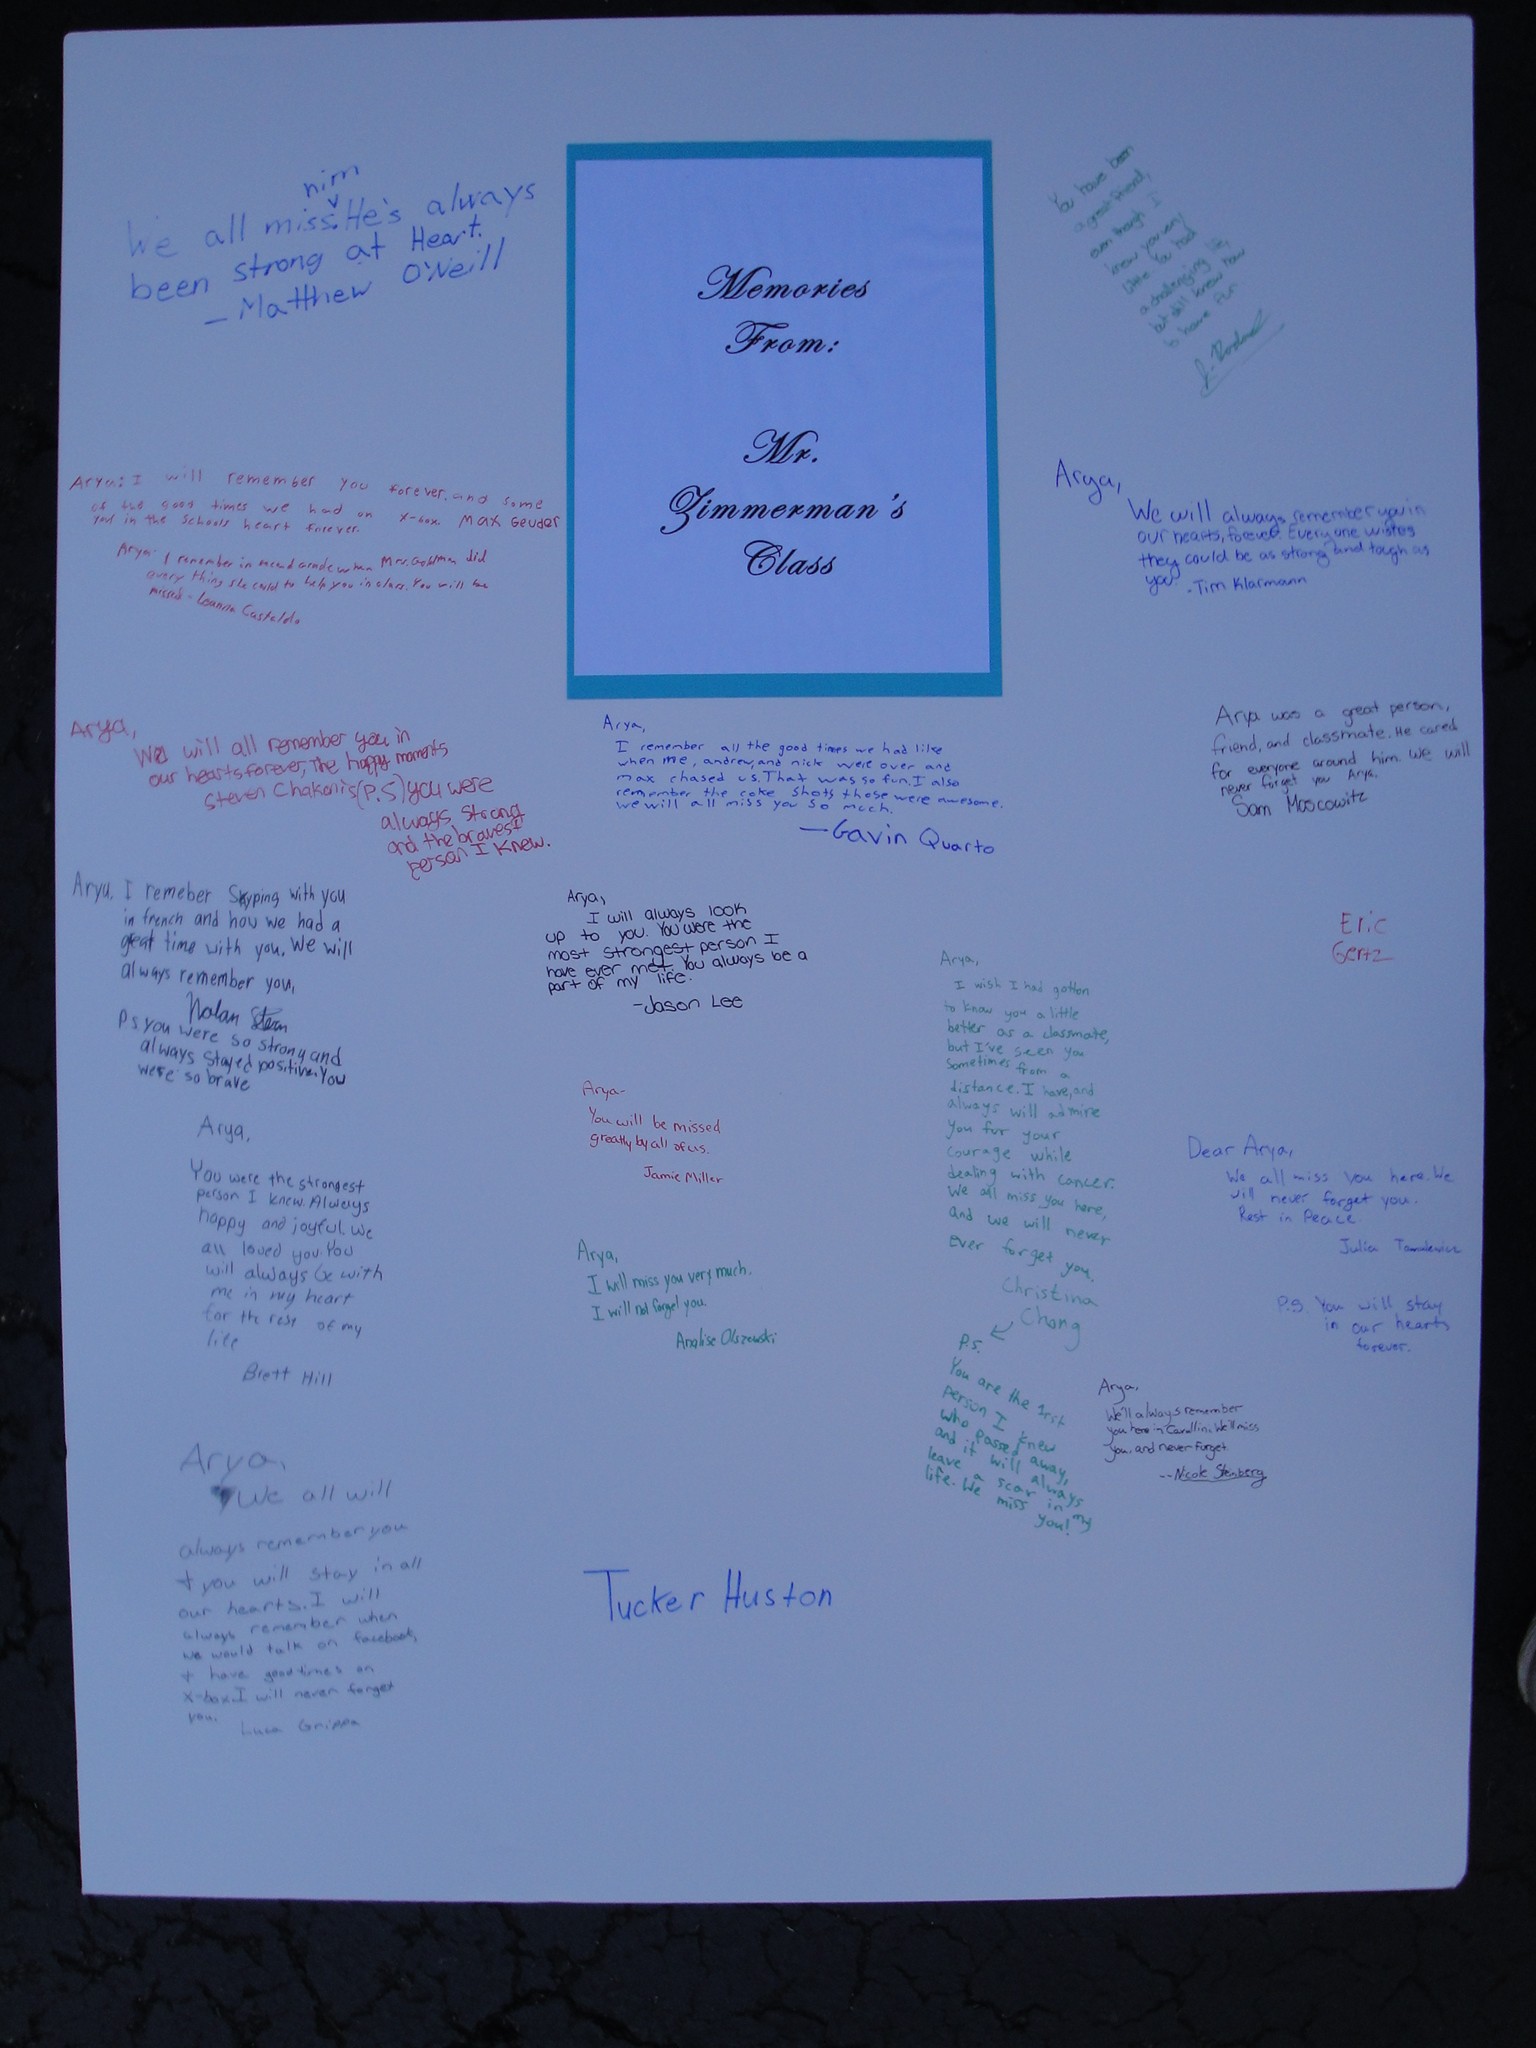 Memories
From:
Mr.
Zimmerman's
Class
him
We all miss. He's always
been strong at Heart.
- Matthew O'Neill
You have been
a great friend,
even though I
knew you very
little You had
a challenging life,
but still knew how
to have fun
Arya: I will remember you forever, and some
of the good times we had on x-box. Max Geuder
you in the schools heart forever.
Arya- I remember in second grade when Mrs. Goldman did
every thing she could to help you in class. You will be
missed - Leanna Castaldo
Arya,
We will always remember you in
our hearts, forever. Everyone wishes
they could be as strong and tough as
you
- Tim Klarmann
Arya,
We will all remember you in
our hearts forever, The happy moments
Steven Chakonis (P.S) you were
always strong
and the bravest
person I knew.
Arya,
I remember all the good times we had like
when me, andrew, and nick were over and
max chased us. That was so fun. I also
remember the coke shots those were awesome.
we will all miss you so much.
- Gavin Quarto
Arya was a great person,
friend, and classmate. He cared
for everyone around him. We will
never forget you Arya.
Sam Moscowitz
Arya, I remeber Skyping with you
in french and how we had a
great time with you. We will
always remember you,
Nolan Stern
P.S. you were so strong and
always stayed positive. You
were so brave
Arya,
I will always look
up to you. You were the
most strongest person I
have ever met. You always be a
part of my life.
- Jason Lee
Eric
Gertz
Arya,
I wish I had gotton
to know you a little
better as a classmate,
but I've seen you
sometimes from a
distance. I have, and
always will admire
you for your
courage while
dealing with cancer.
We all miss you here,
and we will never
ever forget you.
Christina
Chang
P.S.
You are the 1rst
person I knew
who passed away,
and it will always
leave a scar in my
life. We miss you!
Arya-
You will be missed
greatly by all of us.
Jamie Miller
Arya,
You were the strongest
person I knew. Always
happy and joyful. We
all loved you. You
will always be with
me in my heart
for the rest of my
life
Brett Hill
Dear Arya,
We all miss you here. We
will never forget you.
Rest in Peace.
Julia
P.S. You will stay
in our hearts
forever.
Arya,
I will miss you very much.
I will not forget you
Analise Olszewski
Arya,
We'll always remember
you here in Cavallini. We'll miss
you, and never forget.
-- Nicole Steinberg
Arya,
We all will
always remember you
+ you will stay in all
our hearts. I will
always remember when
we would talk on facebook,
+ have good times on
x-box. I will never forget
you.
Luca Grippa
Tucker Huston